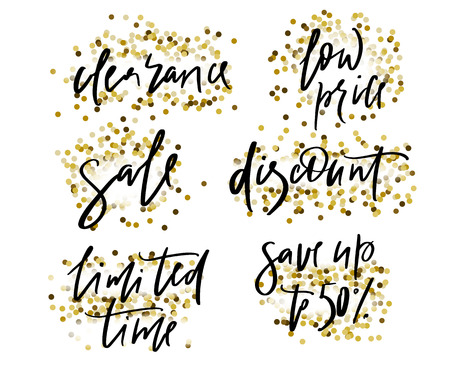 clearance
low
price
sale
discount
limited
time
save up
to 50%